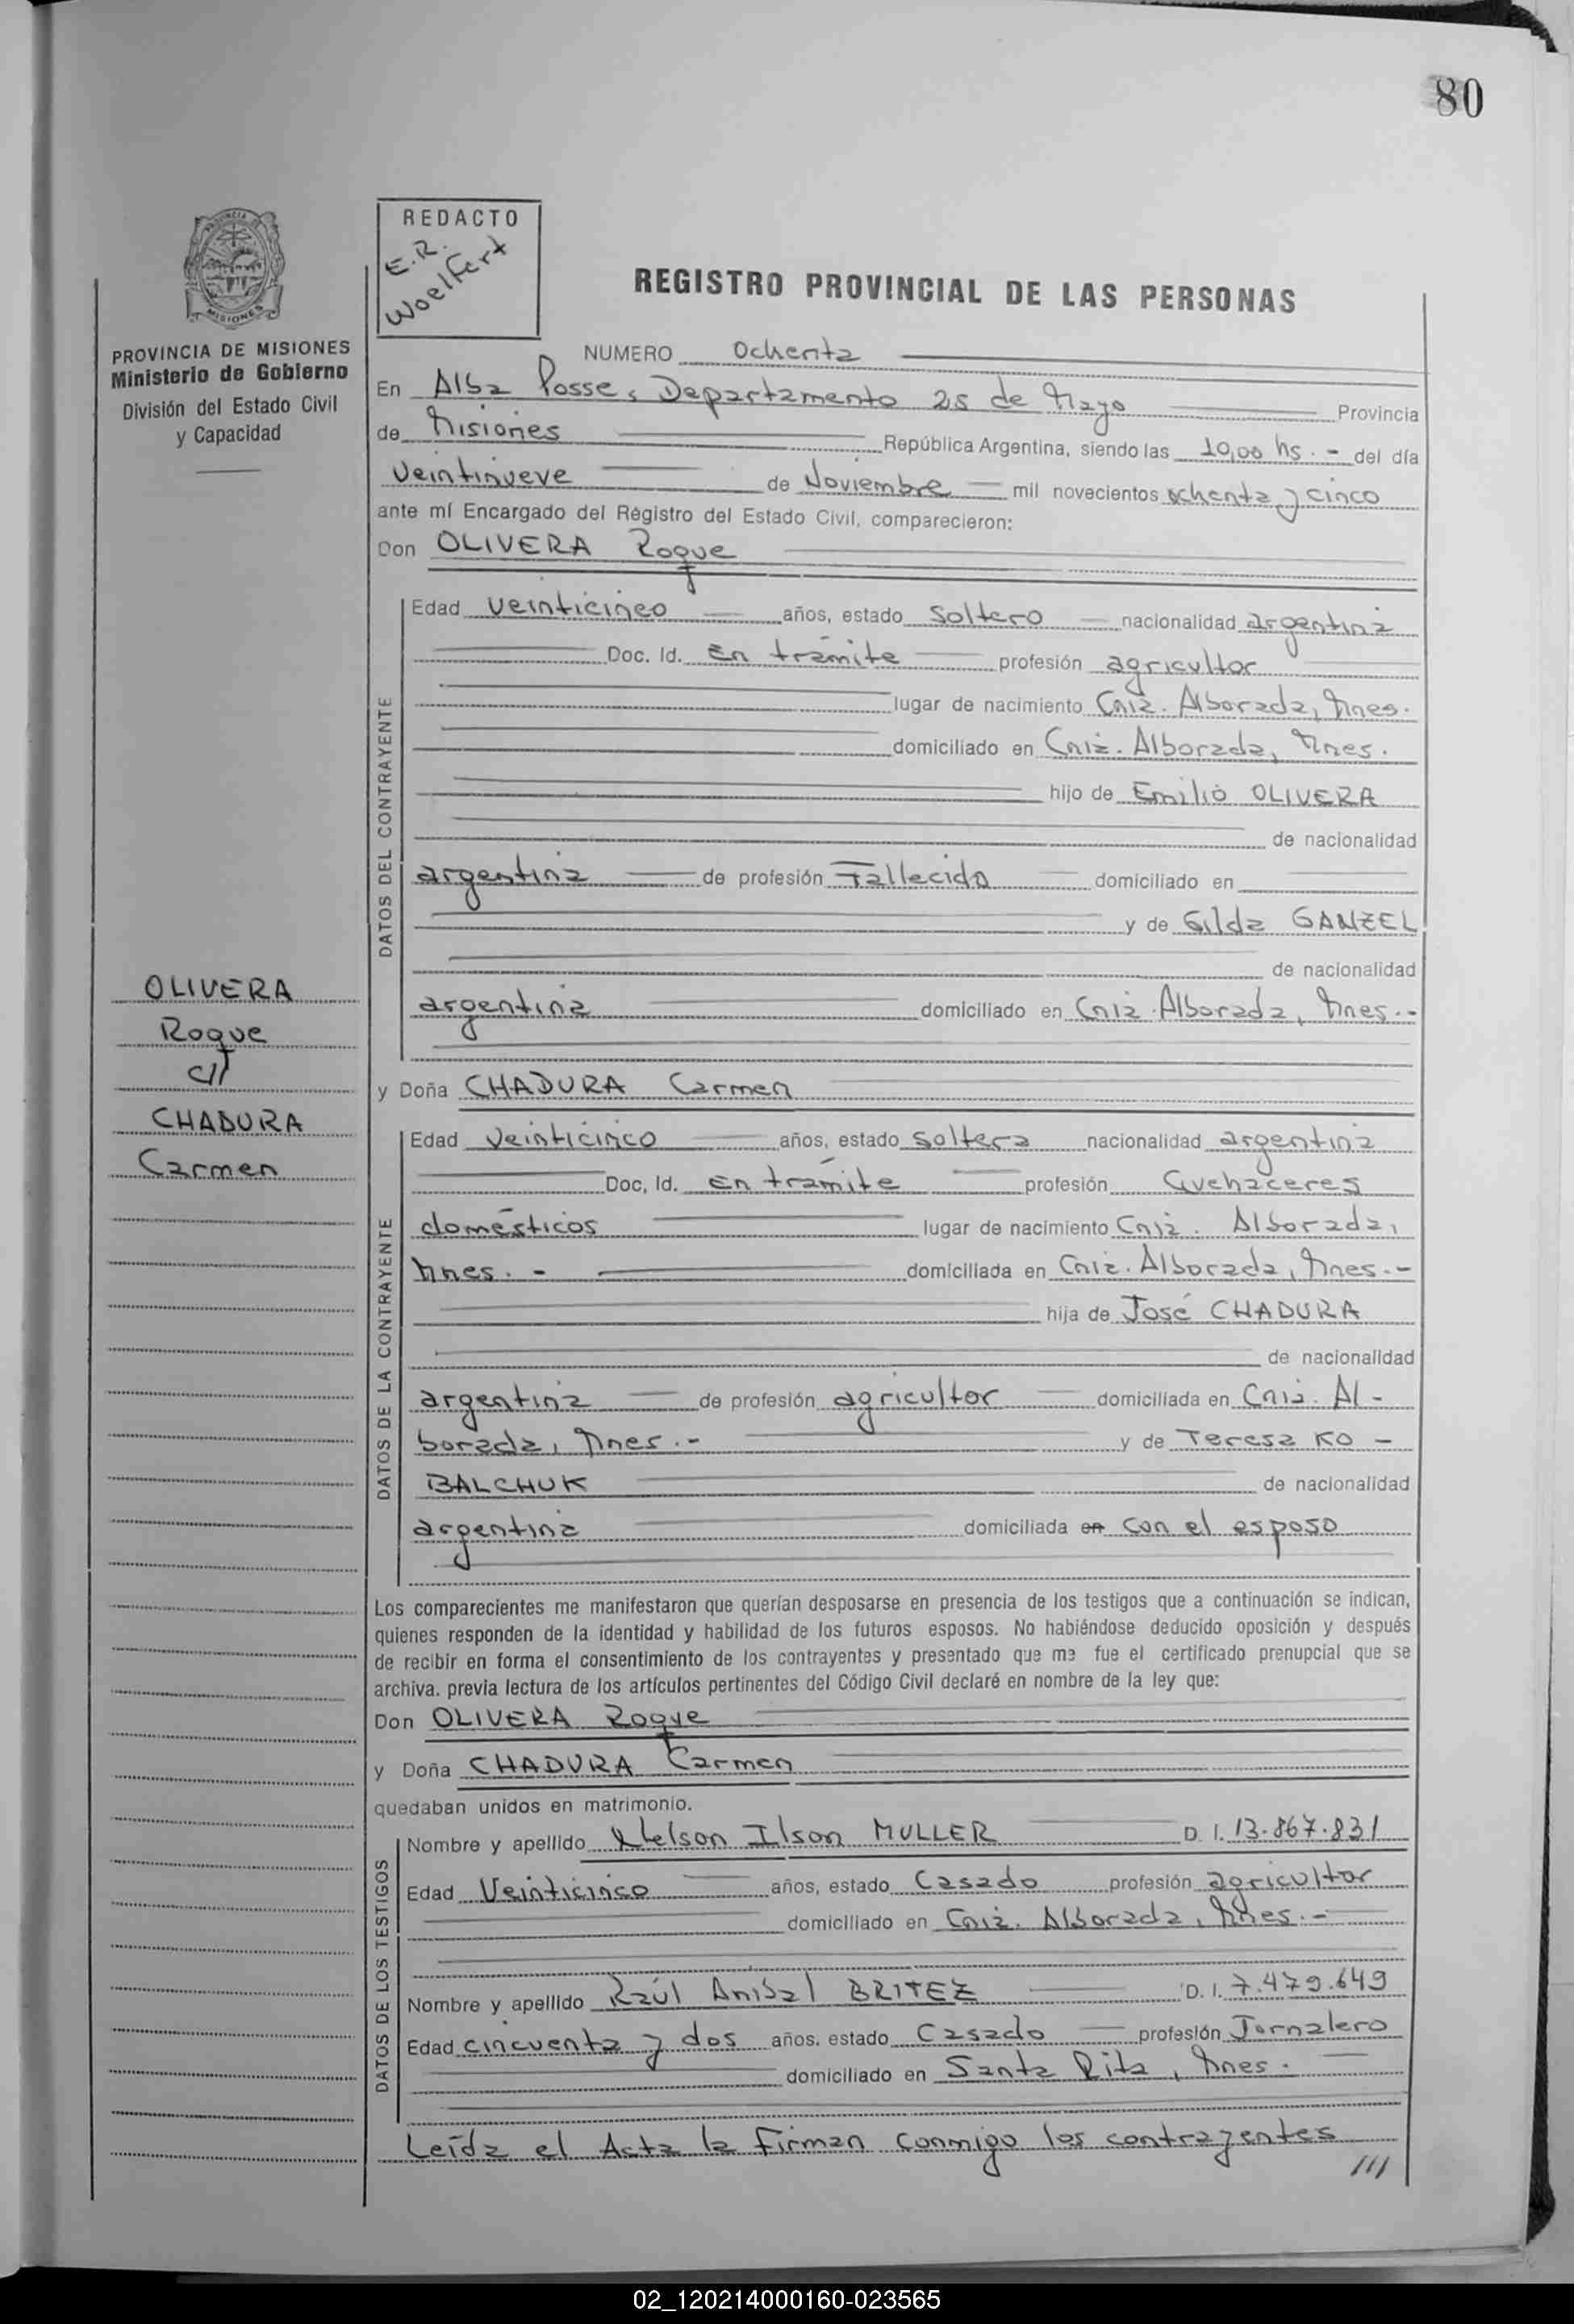 80
REDACTO
E.R.
Woelfert
PROVINCIA DE MISIONES
MISIONES
PROVINCIA DE MISIONES
Ministerio de Gobierno
División del Estado Civil
y Capacidad
REGISTRO PROVINCIAL DE LAS PERSONAS
NUMERO Ochenta
En Alba Posse, Departamento 25 de Mayo Provincia
de Misiones República Argentina, siendo las 10,00 hs. - del día
veintinueve de Noviembre mil novecientos ochenta y cinco
ante mí Encargado del Registro del Estado Civil, comparecieron:
Don OLIVERA Roque
OLIVERA
Roque
c/
CHADURA
Carmen
DATOS DEL CONTRAYENTE
Edad veinticinco años, estado soltero nacionalidad argentina
Doc. Id. En trámite profesión agricultor
lugar de nacimiento Cnia. Alborada, Mnes.
domiciliado en Cnia. Alborada, Mnes.
hijo de Emilio OLIVERA
de nacionalidad
argentina de profesión Fallecido domiciliado en
y de Gilda GANZEL
de nacionalidad
argentina domiciliado en Cnia. Alborada, Mnes.-
y Doña CHADURA Carmen
DATOS DE LA CONTRAYENTE
Edad veinticinco años, estado soltera nacionalidad argentina
Doc, Id. En trámite profesión Quehaceres
domésticos lugar de nacimiento Cnia. Alborada,
Mnes. - domiciliada en Cnia. Alborada, Mnes.-
hija de José CHADURA
de nacionalidad
argentina de profesión agricultor domiciliada en Cnia. Al-
borada, Mnes.- y de Teresa KO-
BALCHUK de nacionalidad
argentina domiciliada en con el esposo
Los comparecientes me manifestaron que querían desposarse en presencia de los testigos que a continuación se indican,
quienes responden de la identidad y habilidad de los futuros esposos. No habiéndose deducido oposición y después
de recibir en forma el consentimiento de los contrayentes y presentado que me fue el certificado prenupcial que se
archiva. previa lectura de los artículos pertinentes del Código Civil declaré en nombre de la ley que:
Don OLIVERA Roque
y Doña CHADURA Carmen
quedaban unidos en matrimonio.
DATOS DE LOS TESTIGOS
Nombre y apellido Nelson Ilson MULLER D. I. 13.867.831
Edad Veinticinco años, estado Casado profesión agricultor
domiciliado en Cnia. Alborada, Mnes.-
Nombre y apellido Raúl Anibal BRITEZ D. I. 7.479.649
Edad cincuenta y dos años. estado Casado profesión Jornalero
domiciliado en Santa Rita, Mnes.
Leída el Acta la firman conmigo los contrayentes
///
02_120214000160-023565